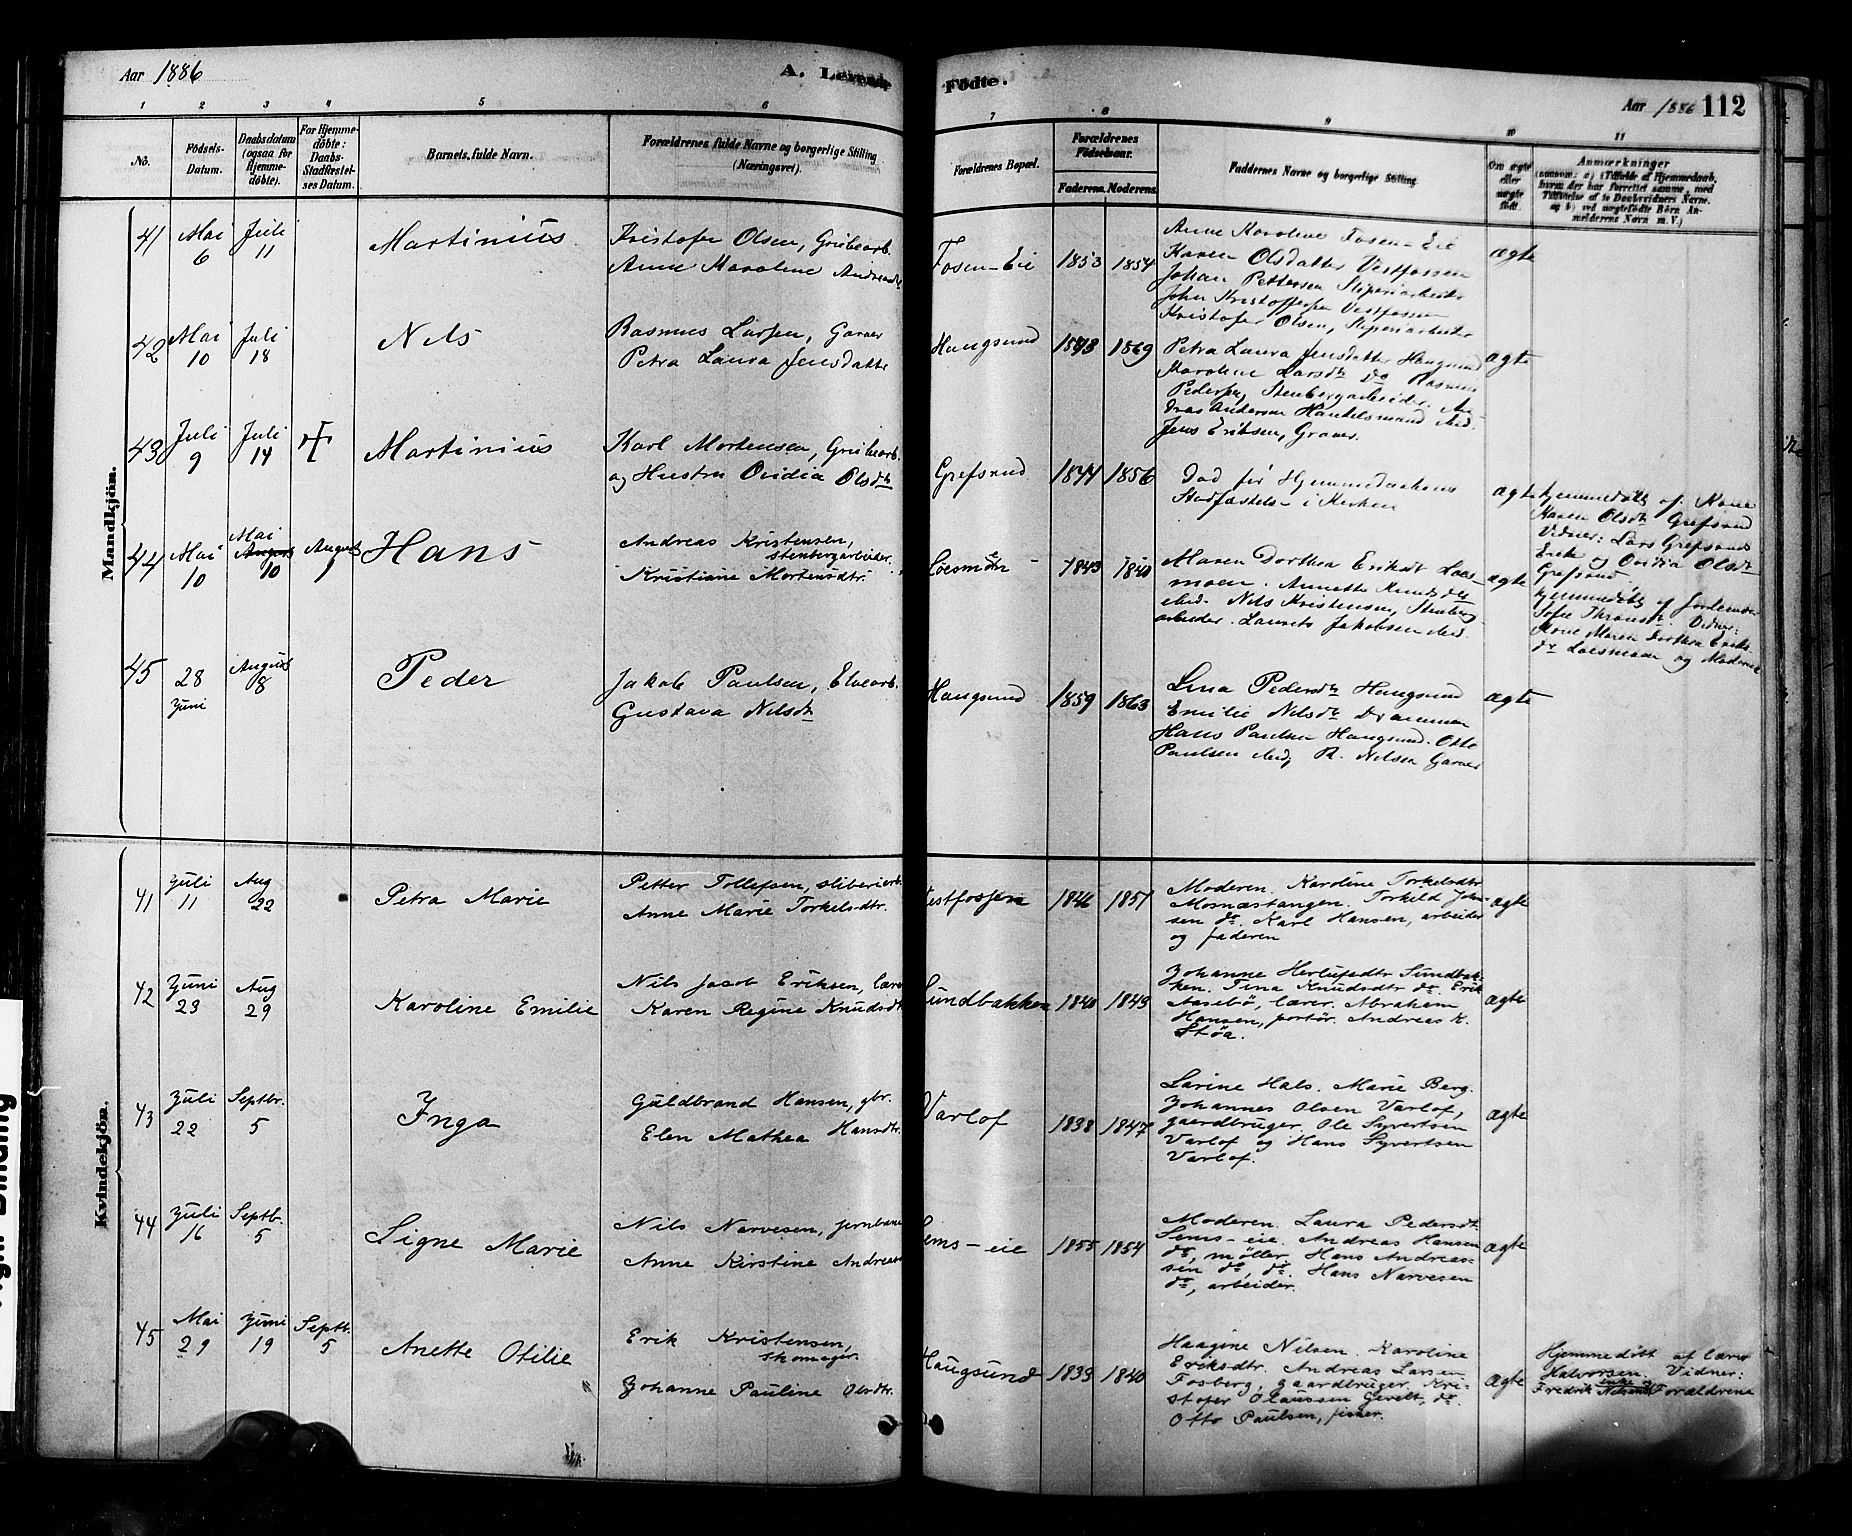 Aar 1886
A. Levende
Födte.
Aar 1886 112
1 2 3 4 5 6 7 8 9 10 11
No.
Födsels-
Datum.
Daabsdatum
(ogsaa for
Hjemme-
döbte).
For Hjemme-
döbte:
Daabs-
Stadfæstel-
ses Datum.
Barnets fulde Navn.
Forældrenes fulde Navne og borgerlige Stilling
(Næringsvei).
Forældrenes Bopæl.
Forældrenes
Födselsaar.
Faderens. Moderens.
Faddernes Navne og borgerlige Stilling.
Om ægte
eller
uægte
födt.
Anmærkninger
(saasom: a) i Tilfælde af Hjemmedaab,
hvem der har forrettet samme, med
Tilføielse af to Daabsvidners Navne,
og b) ved uægtefödte Börn An-
melderens Navn m. V.)
Mandkjön.
41
Mai
6
Juli
11
Martinius
Kristofer Olsen, Grubearb.
Anne Karoline Andreasdt
Fosen-Eie
1853 1854
Anne Karoline Fosen-Eie
Karen Olsdatter Vestfossen
Johan Pettersen Sliperiarbeider
John Kristoffersen Vestfossen
Kristofer Olsen, Sliperiarbeider
ægte
42
Mai
10
Juli
18
Nils
Rasmus Larsen, Garver
Petra Laura Jensdatter
Haugsund
1869
Petra Laura Jensdatter Haugsund
Karoline Larsdt do Rasmus
Pedersen, Stenbergarbeider. An-
dreas Anderson Handelsmand ibid.
Jens Eriksen, Graver.
ægte
43
Juli
9
Juli
14
Martinius
Karl Mortensen, Grubearb.
og Hustru Ovidia Olsdt
Grefsrud
1844 1856
Död för Hjemmedaabens
Stadfæstelse i Kirken
ægte
hjemmedöbt af Kone
Karen Olsdt Grefsrud
Vidner: Lars Grefsrud
Erik og Ovidia Olsdt
Grefsrud
44
Mai
10
Mai
August
10
August
1
Hans
Andreas Kristensen,
stenbergarbeider.
Kristiane Mortensdtr.
Loesmoen
1843 1840
Maren Dorthea Eriksdt Loes-
moen. Annette Knudsdtr
ibid. Nils Kristensen, Stenberg-
arbeider. Laurits Jakobsen ibid.
ægte
hjemmedöbt af Jordemor
Sofie Thronsdt. Vidner:
Kone Maren Dorthea Eriks-
dt Loesmoen og Moderen
45
28
Juni
August
8
Peder
Jakob Paulsen, Elvearb.
Gustava Nilsdt
Haugsund
1859 1863
Lina Pedersdt Haugsund
Emilie Nilsdt Drammen
Hans Paulsen Haugsund. Otto
Paulsen ibid, R. Nilsen Garver
ægte
Kvindekjön.
41
Juli
11
Aug
22
Petra Marie
Petter Tollefsen, sliberiarb.
Anne Marie Torkelsdtr.
Vestfossen
1846 1851
Moderen. Karoline Torkelsdtr
Mosnæstangen. Torkild John-
sen do. Karl Hansen, arbeider
og faderen
ægte
42
Juni
23
Aug
29
Karoline Emilie
Nils Jacob Eriksen, lærer
Karen Regine Knudsdtr
Sundbakken
1840 1843
Johanne Herlufsdtr Sundbak-
ken. Tina Knudsdtr do. Erik
Aasebö, lærer. Abraham
Hansen, portör. Andreas K.
Stöa.
ægte
43
Juli
22
Septbr.
5
Inga
Guldbrand Hansen, gbr.
Elen Mathea Hansdtr.
Varlof
1838 1847
Larine Hals. Marie Berg.
Johannes Olsen Varlof,
gaardbruger. Ole Syvertsen
Varlof og Hans Syvertsen
Varlof.
ægte
44
Juli
16
Septb.
5
Signe Marie
Nils Narvesen, jernbane
Anne Kirstine Andreas
Sems-eie
1855 1854
Moderen. Laura Pedersdt.
Sems-eie. Andreas Hansen
do, möller. Hans Andreas-
sen do, do. Hans Narvesen
do, arbeider.
ægte
45
Mai
29
Juni
19
Septb.
5
Anette Otilie
Erik Kristensen,
skomager.
Johanne Pauline Olsdtr.
Haugsund
1833 1840
Haagine Nilsen. Karoline
Eriksdtr. Andreas Larsen
Fosberg, gaardbruger. Kri-
stofer Olaussen Gevelt, do.
Otto Paulsen, fisker.
ægte
Hjemmedöbt af lærer
Halvorsen. Vidner:
Fredrik Nilsens enke og Forældrene